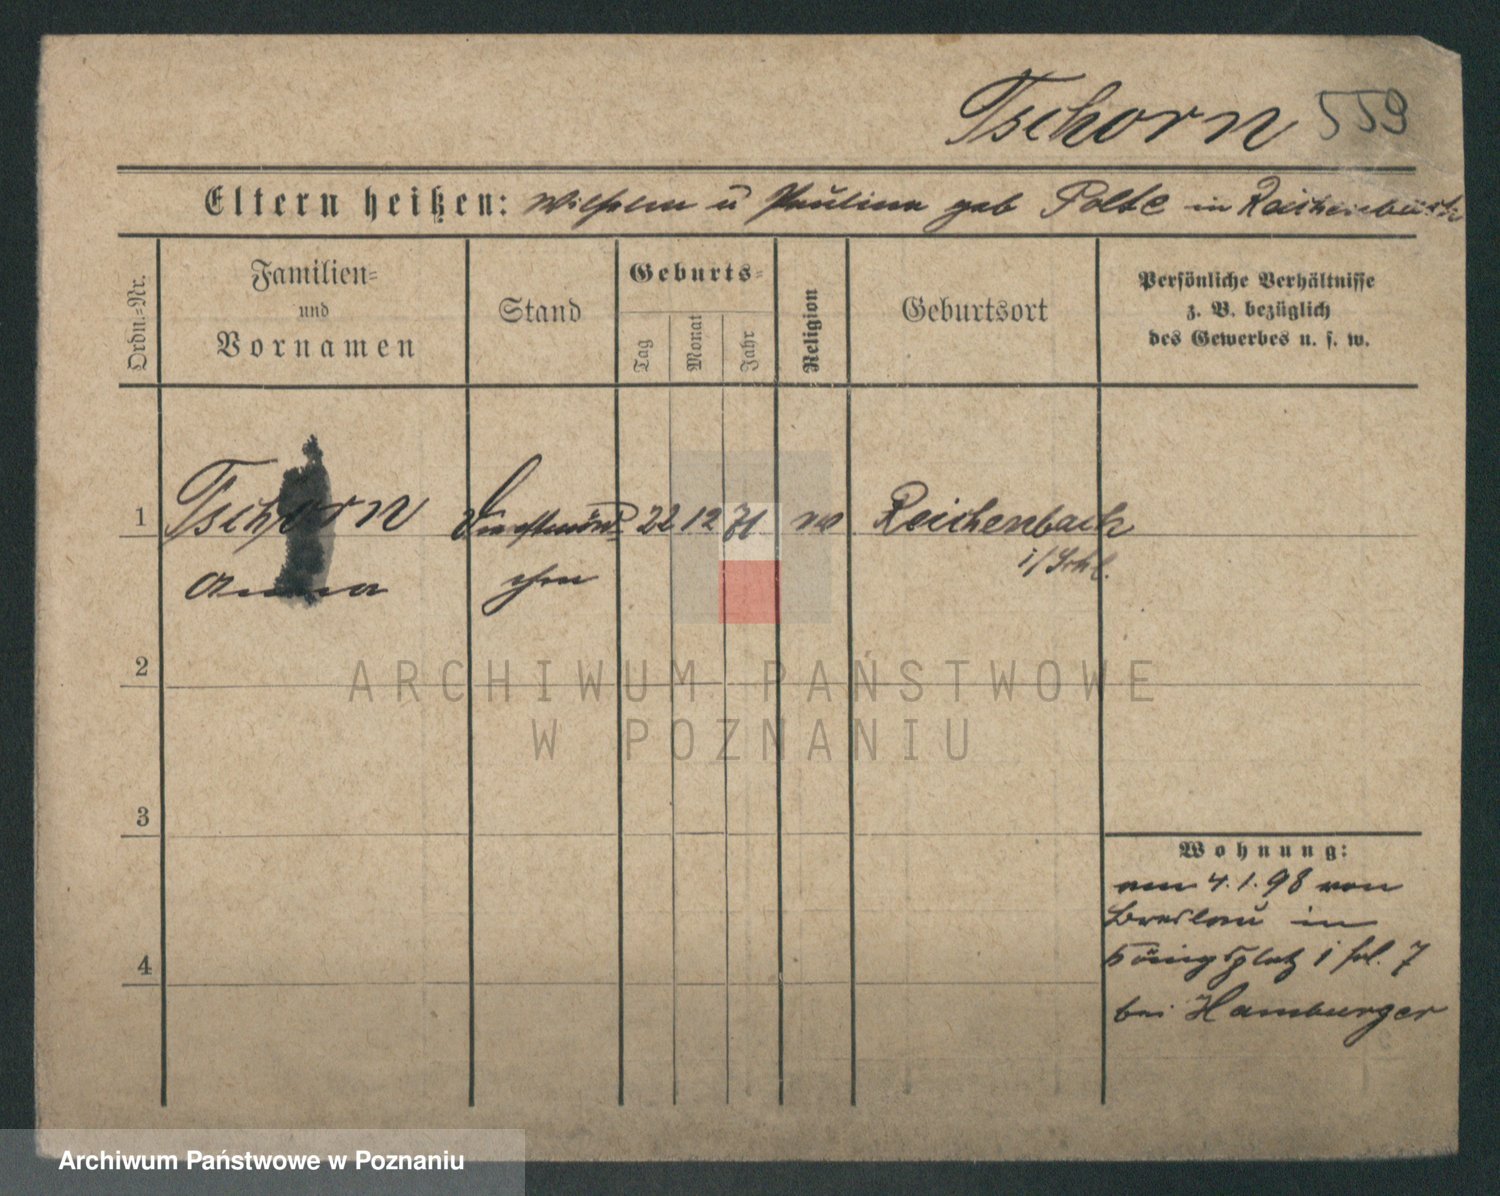 Tschorn 559
Eltern heißen: Wilhelm u Pauline geb Polte in Reichenbach
Ordn.-Nr.
Familien-
und
Vornamen
Stand
Geburts-
Tag
Monat
Jahr
Religion
Geburtsort
Persönliche Verhältnisse
z. B. bezüglich
des Gewerbes u. s. w.
1 Tschorn 22 12 71 ev Reichenbach
Anna i/Schl.
2
3
4
ARCHIWUM PAŃSTWOWE
W POZNANIU
Wohnung:
am 4.1.98 von
Breslau in
Königsplatz 7
bei Hamburger
Archiwum Państwowe w Poznaniu